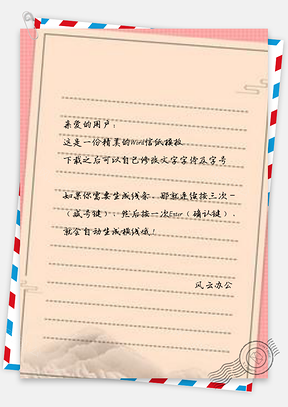 亲爱的用户：
这是一份精美的Word信纸模板
下载之后可以自己修改文字字体及字号
如果你需要生成线条，那就连续按三次-
（减号键），然后按一次Enter（确认键），
就会自动生成横线啦！
风云办公